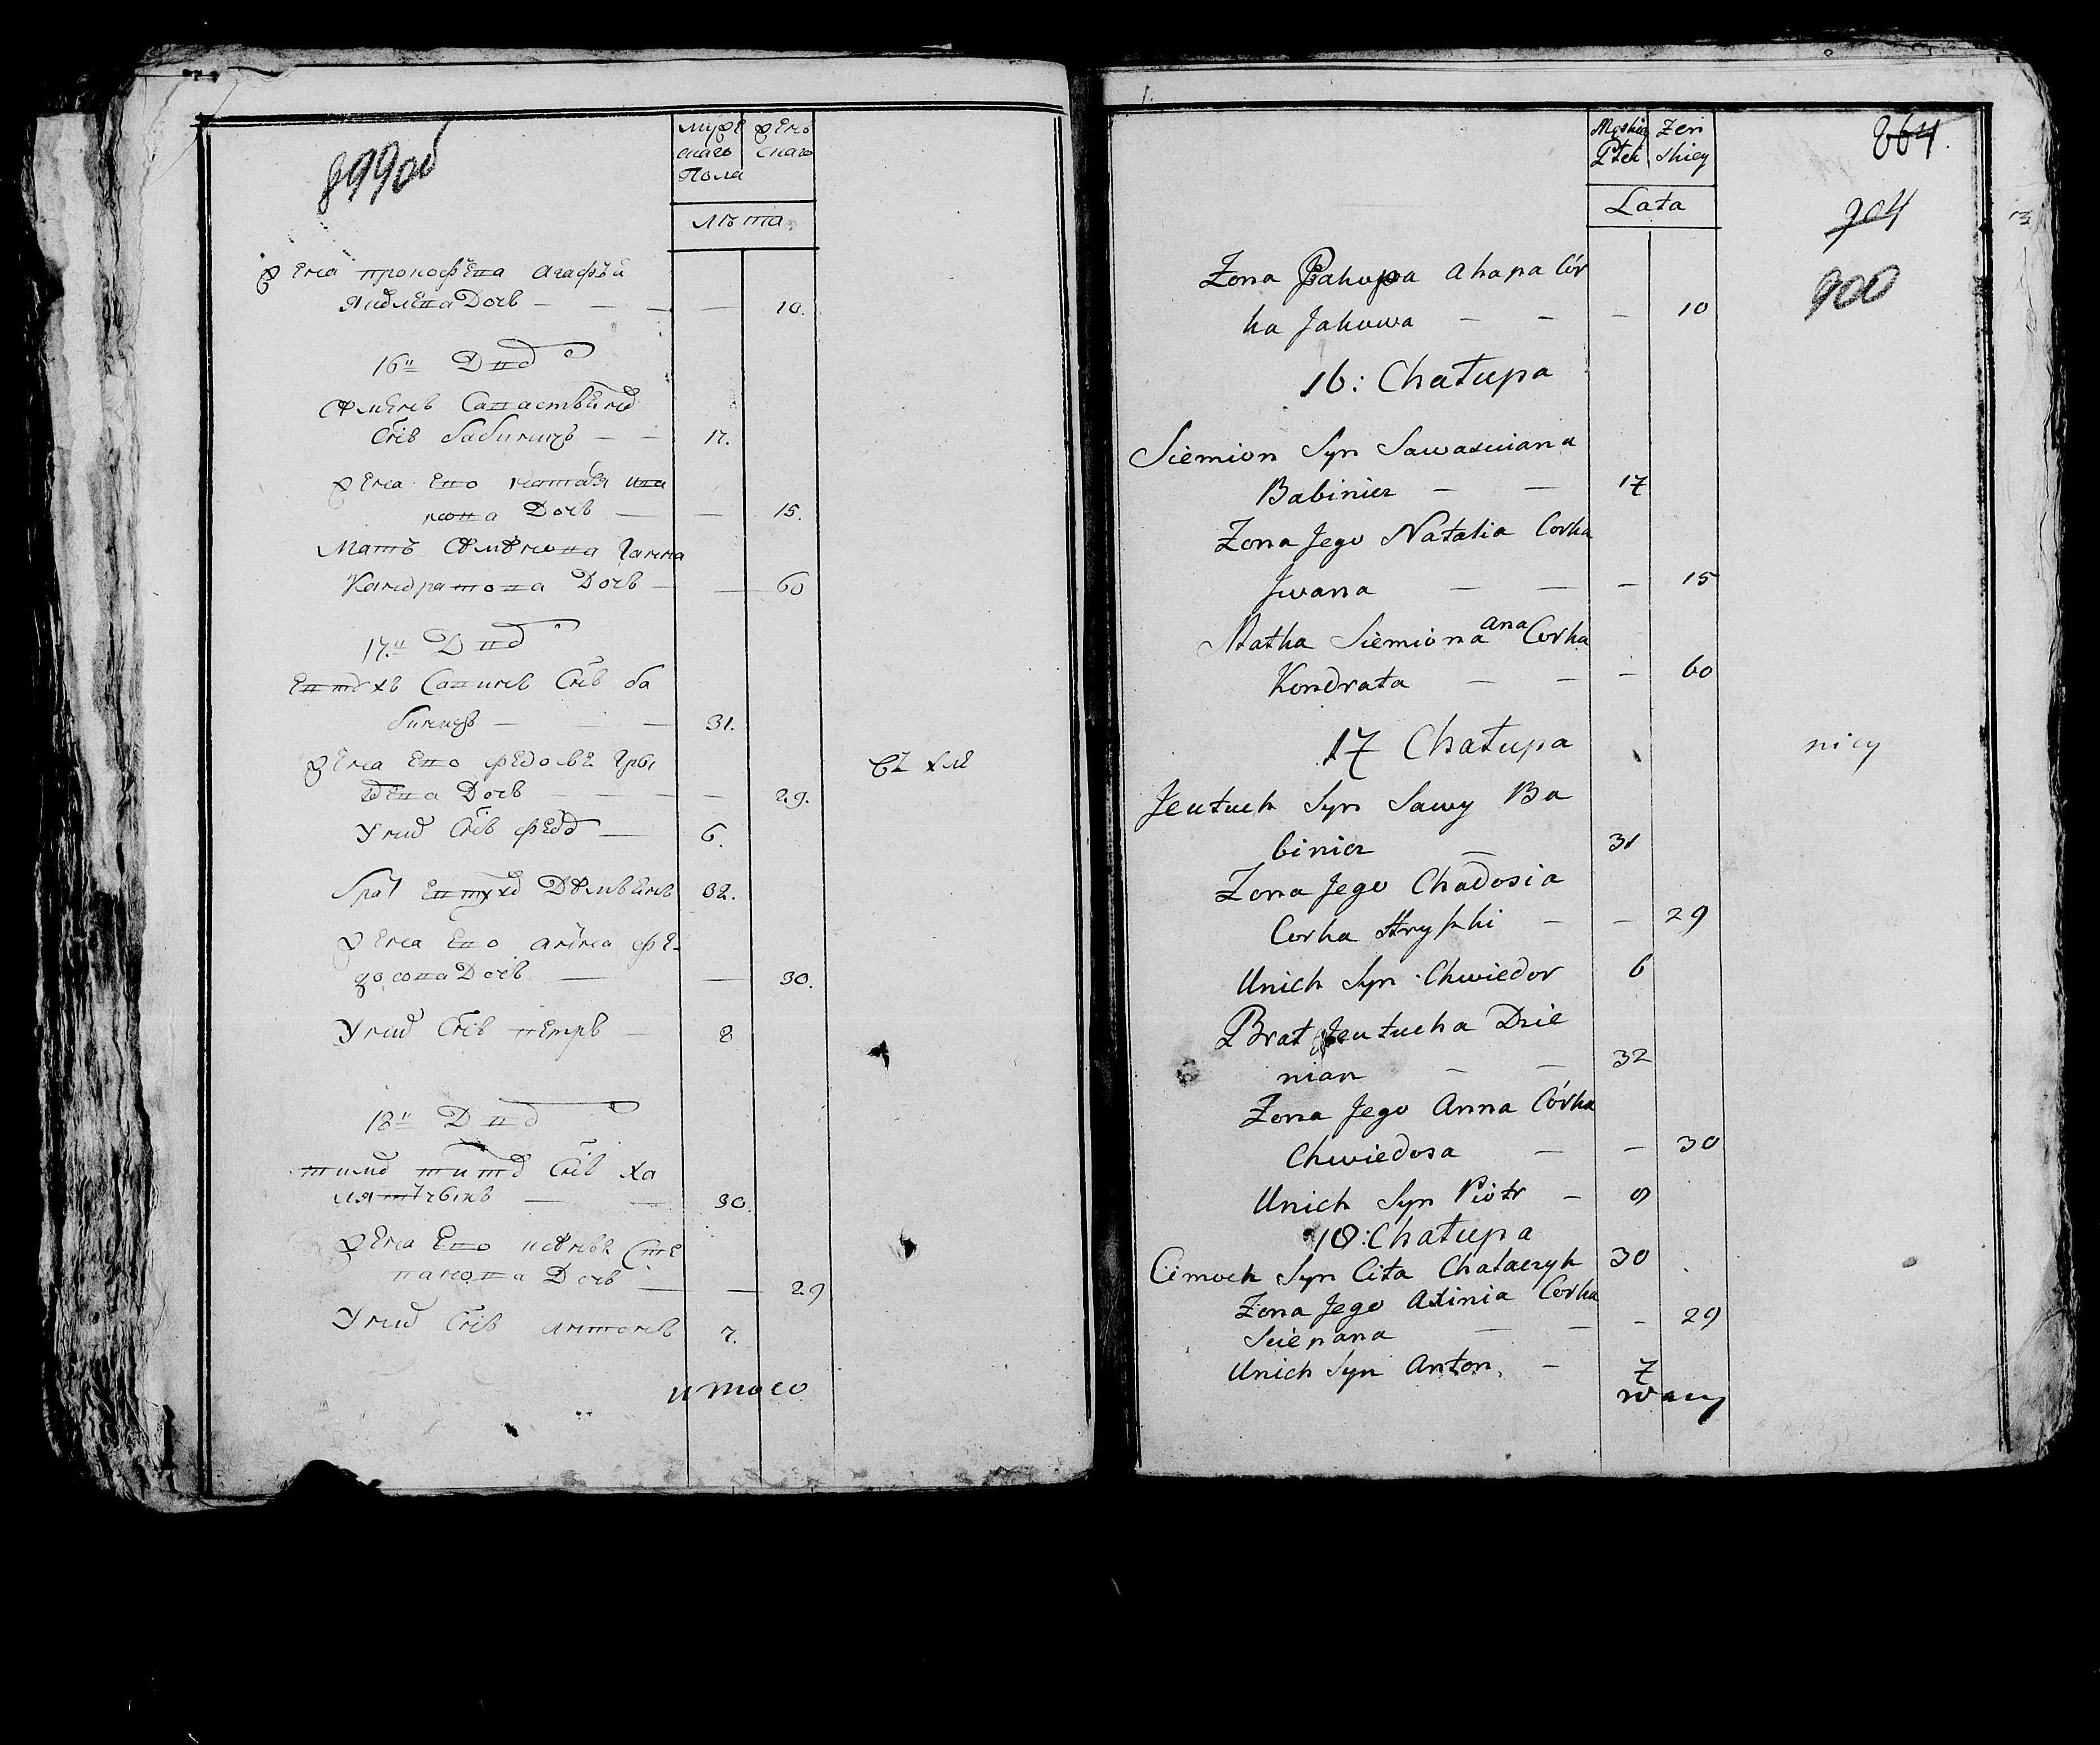 899об
муже женъ
скаго скаго
Пола
лѣта
жена прокофева агафѣи
Яковлева Дочь — — — — 10.
16й Двор
Семенъ Савастьянов
Снъ бабиничъ — — 17.
жена Ево наталя ива
нова Дочь — — 15.
Мать Семенова Ганна
Кондратова Дочь — — 60
17й Двор
Евтухъ Савинъ Снъ ба
биничъ — — 31.
жена Ево федосья гры
шева Дочь — — — — 29.
У них Снъ федор — 6.
брат Евтуха Демьянъ 32.
жена Ево анна фе-
досова Дочь — — 30.
У них Снъ петръ — 8
18й Двор
тимо тито Снъ ха
— — 30.
жена Ево Сте
панова Дочь — — 29
У них Снъ антонъ 7.
итого
Męskiey Żen
Płci skiey
Lata
864.
904
900
Żona Prakopa Ahapa Cór
ka Jakuwa — — — 10
16: Chałupa
Siemion Syn Sawasciana
Babinicz — — 17
Zona Jego Natalia Corka
Jwana — — — 15
Matka Siemiona Ana Corka
Kondrata — — — 60
17 Chałupa
nicy
Jeutuch Syn Sawy Ba
binicz — 31
Zona Jego Chadosia
Corka Hryszki — — 29
Unich Syn Chwiedor 6
Brat Jeutucha Dzie
nian — — 32
Zona Jego Anna Córka
Chwiedosa — — 30
Unich Syn Piotr — 8
18: Chałupa
Cimoch Syn Cita Chalaczyk 30
Zona Jego Axinia Corka
Sciepana — — — 29
Unich Syn Anton — 7